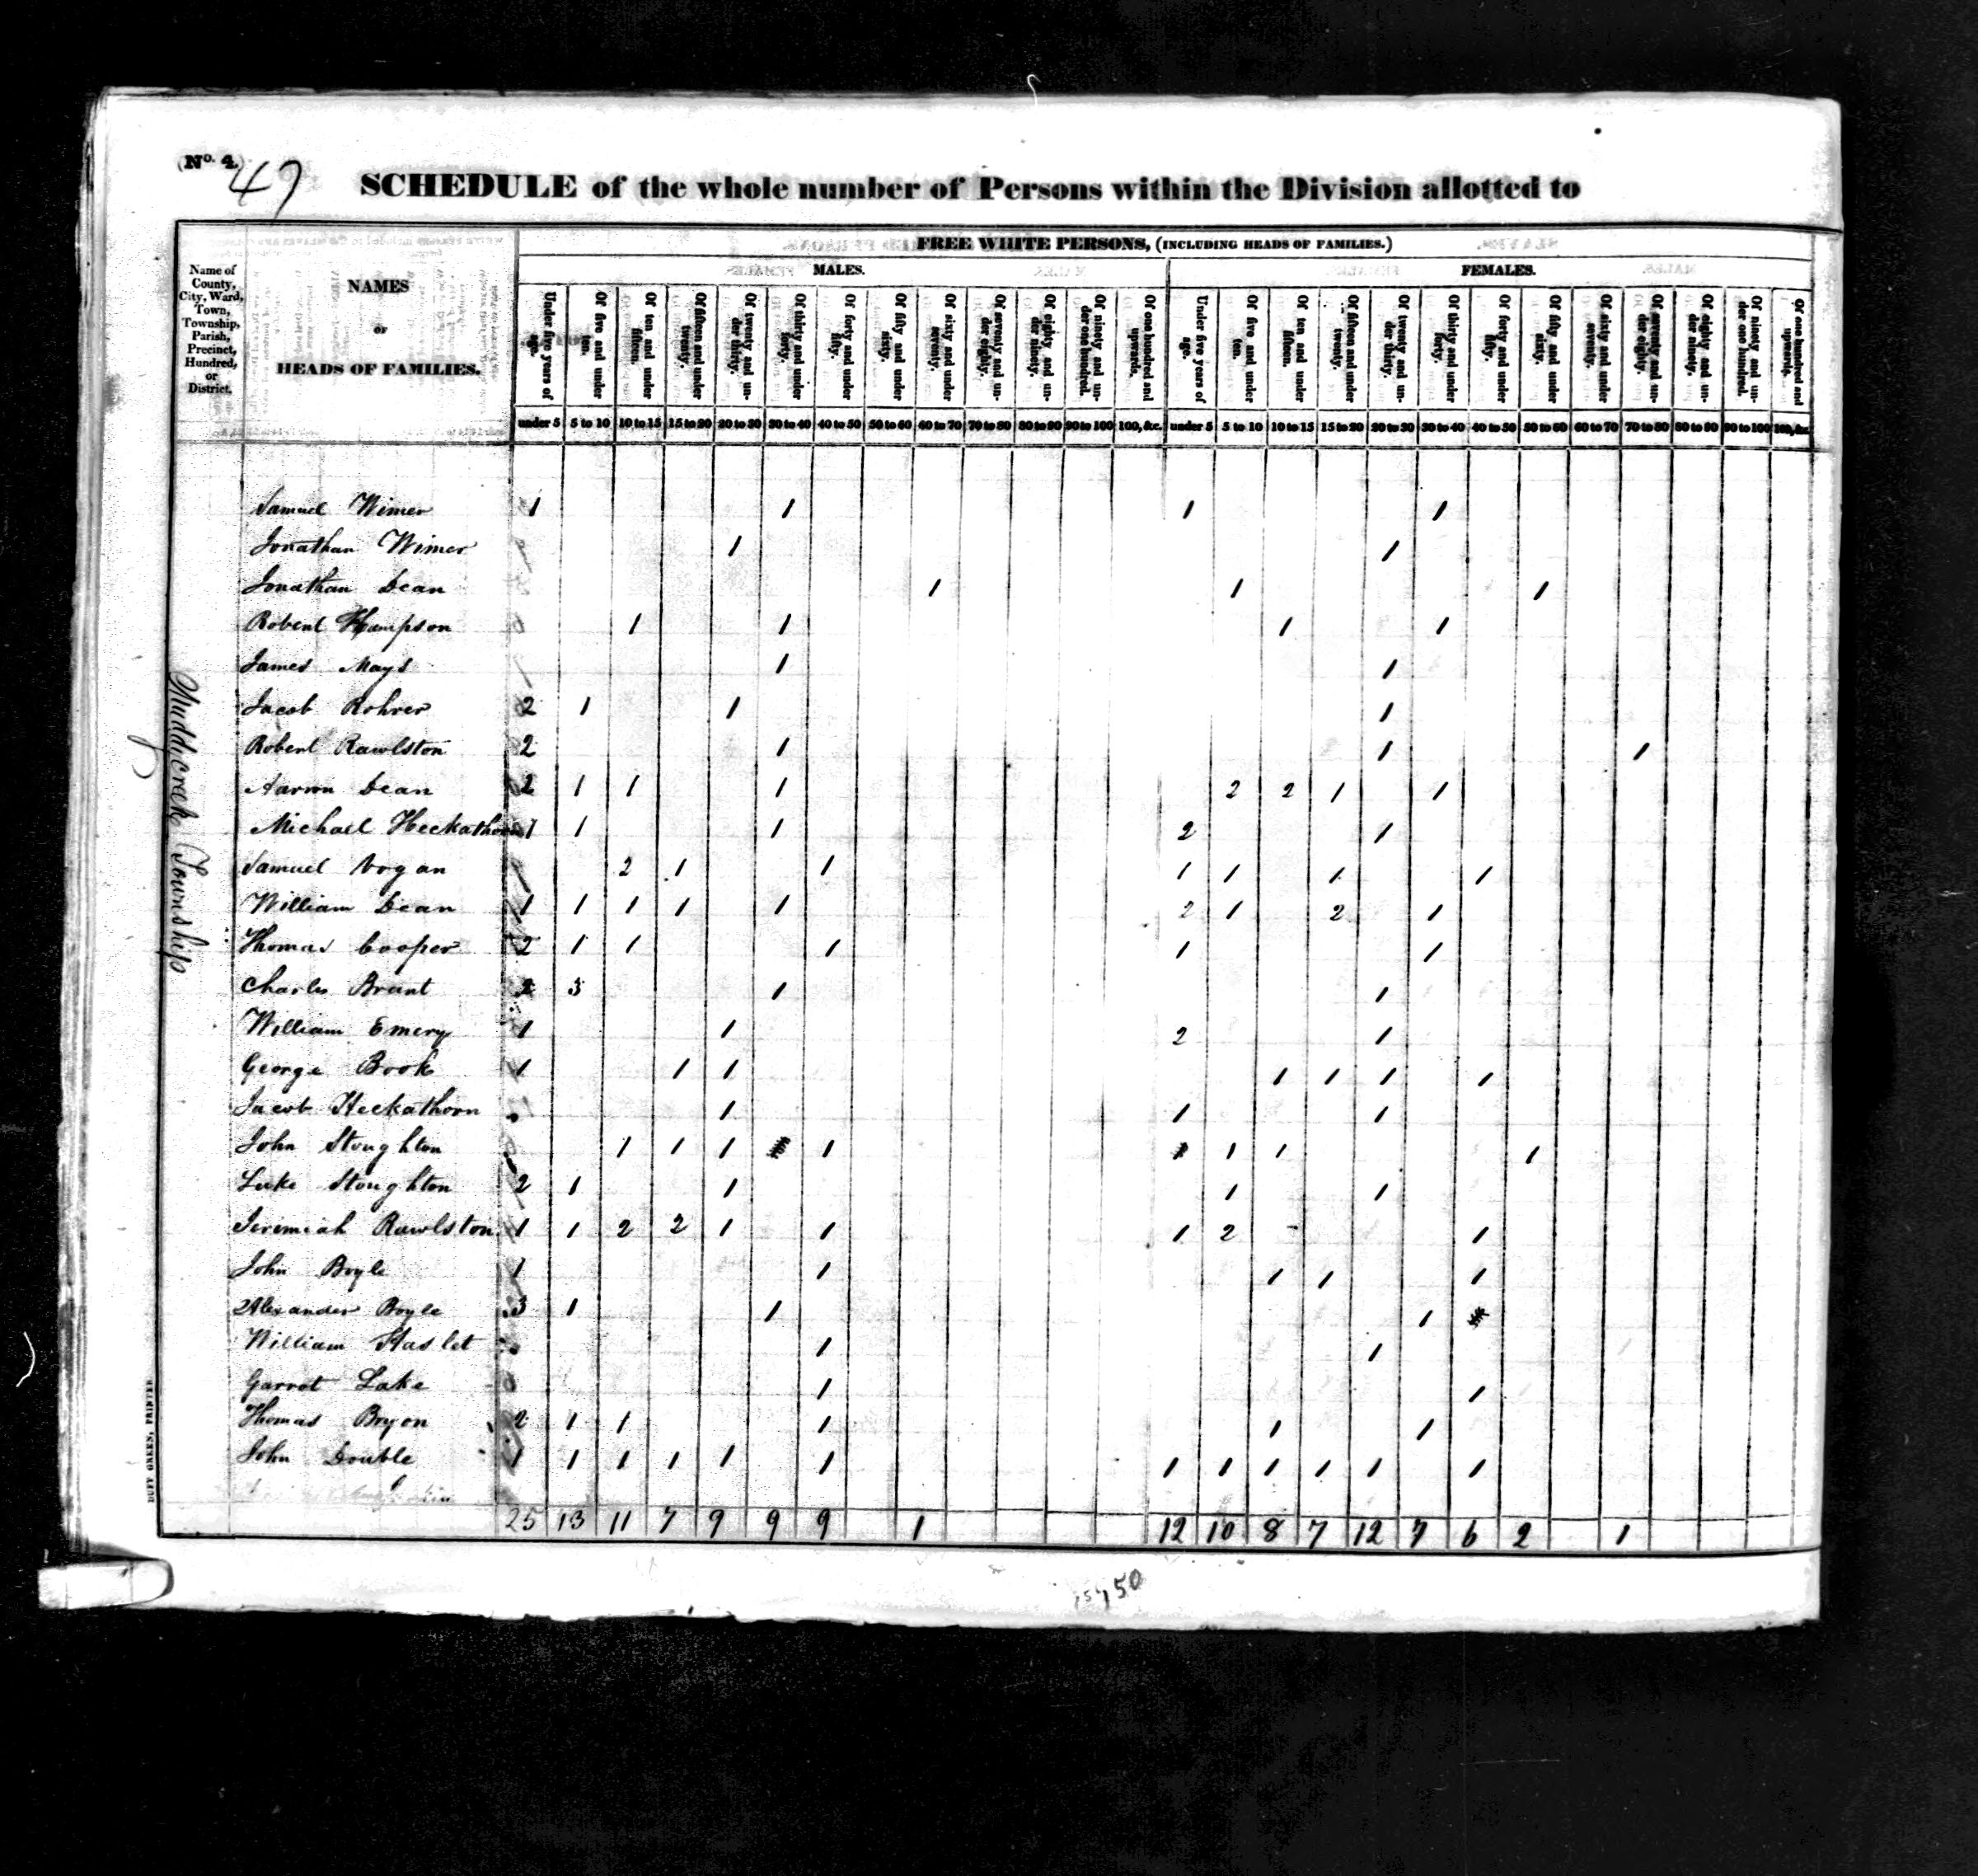 (No. 4.)
47
SCHEDULE of the whole number of Persons within the Division allotted to
Name of County, City, Ward, Town, Township, Parish, Precinct, Hundred, or District.
NAMES OF HEADS OF FAMILIES.
FREE WHITE PERSONS, (INCLUDING HEADS OF FAMILIES.)
MALES. FEMALES.
Under five years of age. Of five and under ten. Of ten and under fifteen. Of fifteen and under twenty. Of twenty and under thirty. Of thirty and under forty. Of forty and under fifty. Of fifty and under sixty. Of sixty and under seventy. Of seventy and under eighty. Of eighty and under ninety. Of ninety and under one hundred. Of one hundred and upwards. Under five years of age. Of five and under ten. Of ten and under fifteen. Of fifteen and under twenty. Of twenty and under thirty. Of thirty and under forty. Of forty and under fifty. Of fifty and under sixty. Of sixty and under seventy. Of seventy and under eighty. Of eighty and under ninety. Of ninety and under one hundred. Of one hundred and upwards.
under 5 5 to 10 10 to 15 15 to 20 20 to 30 30 to 40 40 to 50 50 to 60 60 to 70 70 to 80 80 to 90 90 to 100 100, &c. under 5 5 to 10 10 to 15 15 to 20 20 to 30 30 to 40 40 to 50 50 to 60 60 to 70 70 to 80 80 to 90 90 to 100 100, &c.
Muddicreek Township
Samuel Wimer 1 1 1 1
Jonathan Wimer 1 1
Jonathan Dean 1 1 1
Robert Hampson 1 1 1 1
James Mays 1 1
Jacob Rohrer 2 1 1 1
Robert Rawlston 2 1 1 1
Aaron Dean 2 1 1 1 2 2 1 1
Michael Heckathorn 1 1 1 2 1
Samuel Vogan 2 1 1 1 1 1 1
William Dean 1 1 1 1 1 2 1 2 1
Thomas Cooper 2 1 1 1 1 1
Charles Brant 2 3 1 1
William Emery 1 1 2 1
George Book 1 1 1 1 1 1 1
Jacob Heckathorn 1 1 1
John Stoughton 1 1 1 1 1 1 1 1
Luke Stoughton 2 1 1 1 1
Jerimiah Rawlston 1 1 2 2 1 1 1 2 1
John Boyle 1 1 1 1 1
Alexander Boyle 3 1 1 1
William Haslet 1 1
Garrot Lake 1 1
Thomas Bryon 2 1 1 1 1 1
John Double 1 1 1 1 1 1 1 1 1 1 1 1
25 13 11 7 9 9 9 1 12 10 8 7 12 7 6 2 1
DUFF GREEN, PRINTER